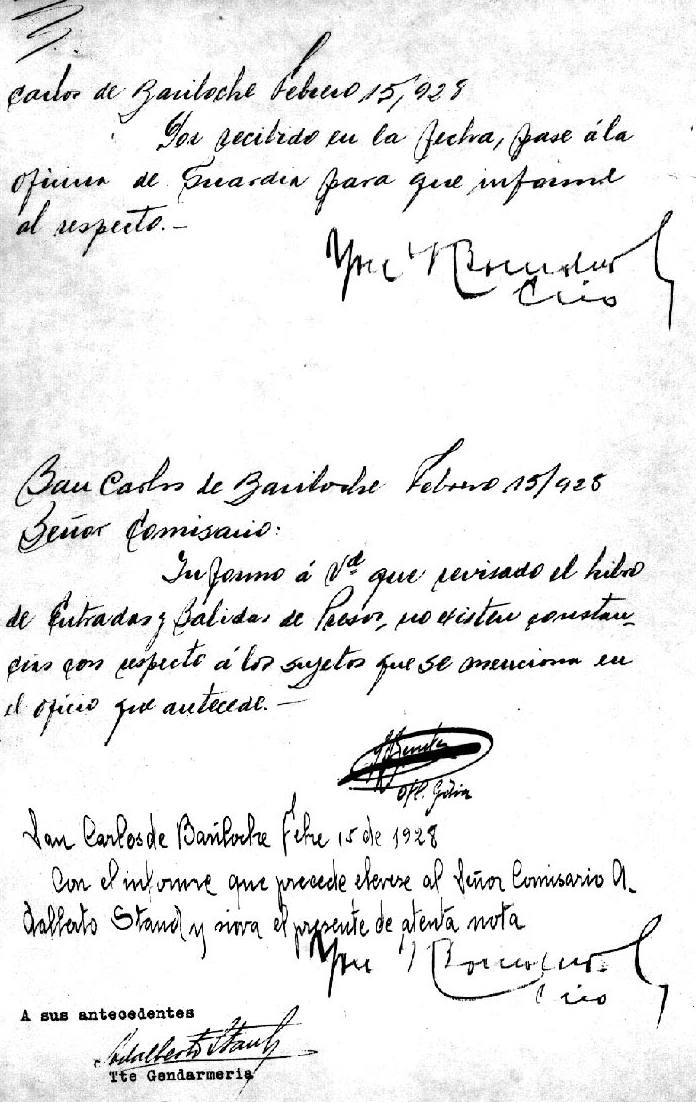 Carlos de Bariloche Febrero 15/928
Por recibido en la fecha, pase á la
oficina de Guardia para que informe
al respecto.—
Crio
San Carlos de Bariloche Febrero 15/928
Señor Comisario:
Informo á Vd que revisado el Libro
de Entradas y Salidas de Presos, no existen constan-
cias con respecto á los sujetos que se menciona en
el oficio que antecede.—
Ofl. Gdia
San Carlos de Bariloche Febre 15 de 1928
Con el informe que precede elevese al Señor Comisario A-
dalberto Staud y sirva el presente de atenta nota
Crio
A sus antecedentes
Adalberto Staud
Tte Gendarmeria